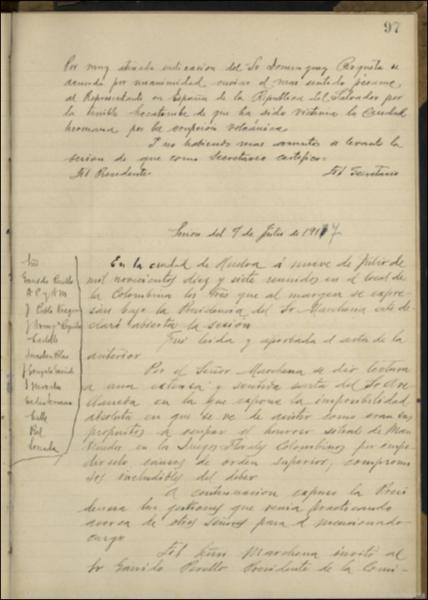 97
Por muy atinada indicacion del Sr Dominguez Roqueta se
acuerda por unanimidad enviar el mas sentido pésame
al Representante en España de la Republica del Salvador por
la terrible hecatombe de que ha sido victima la Ciudad
hermana por la erupcion volcánica.
Y no habiendo mas asuntos se levantó la
sesion de que como Secretario certifico.
El Presidente El Secretario
Sesion del 9 de Julio de 1917
En la ciudad de Huelva á nueve de Julio de
mil novecientos diez y siete reunidos en el local de
la Colombina los Sres que al margen se expre-
san bajo la Presidencia del Sr Marchena este de-
claró abierta la sesión.
Fué leida y aprobada el acta de la
anterior
Por el Señor Marchena se dio lectura
a una extensa y sentida carta del Sr
en la que expone la imposibilidad
absoluta en que se ve de asistir como eran sus
propósitos á ocupar el honroso sitial de Man-
tenedor en los Juegos Florales Colombinos por impe-
dirselo causas de orden superior, compromi-
sos ineludibles del deber
A continuacion expuso la Presi-
dencia las gestiones que venia practicando
acerca de otros Señores para el mencionado
cargo
El Señor Marchena invitó al
Sr Garrido Perello Presidente de la Comi-
Sres
Garrido Perello
J Pablo
Castillo